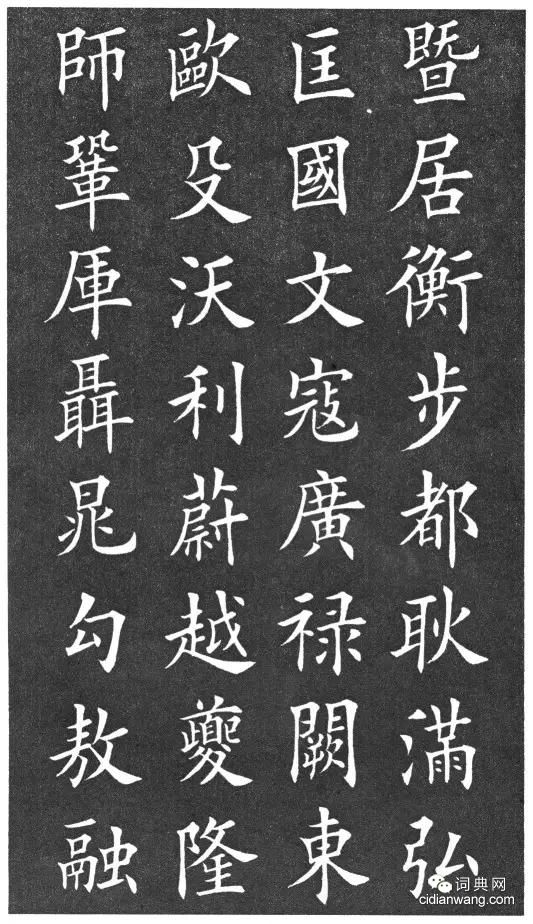 暨居衡步都耿滿弘
匡國文寇廣禄闕東
歐殳沃利蔚越夔隆
師鞏厙聶晁勾敖融
词典网
cidianwang.com